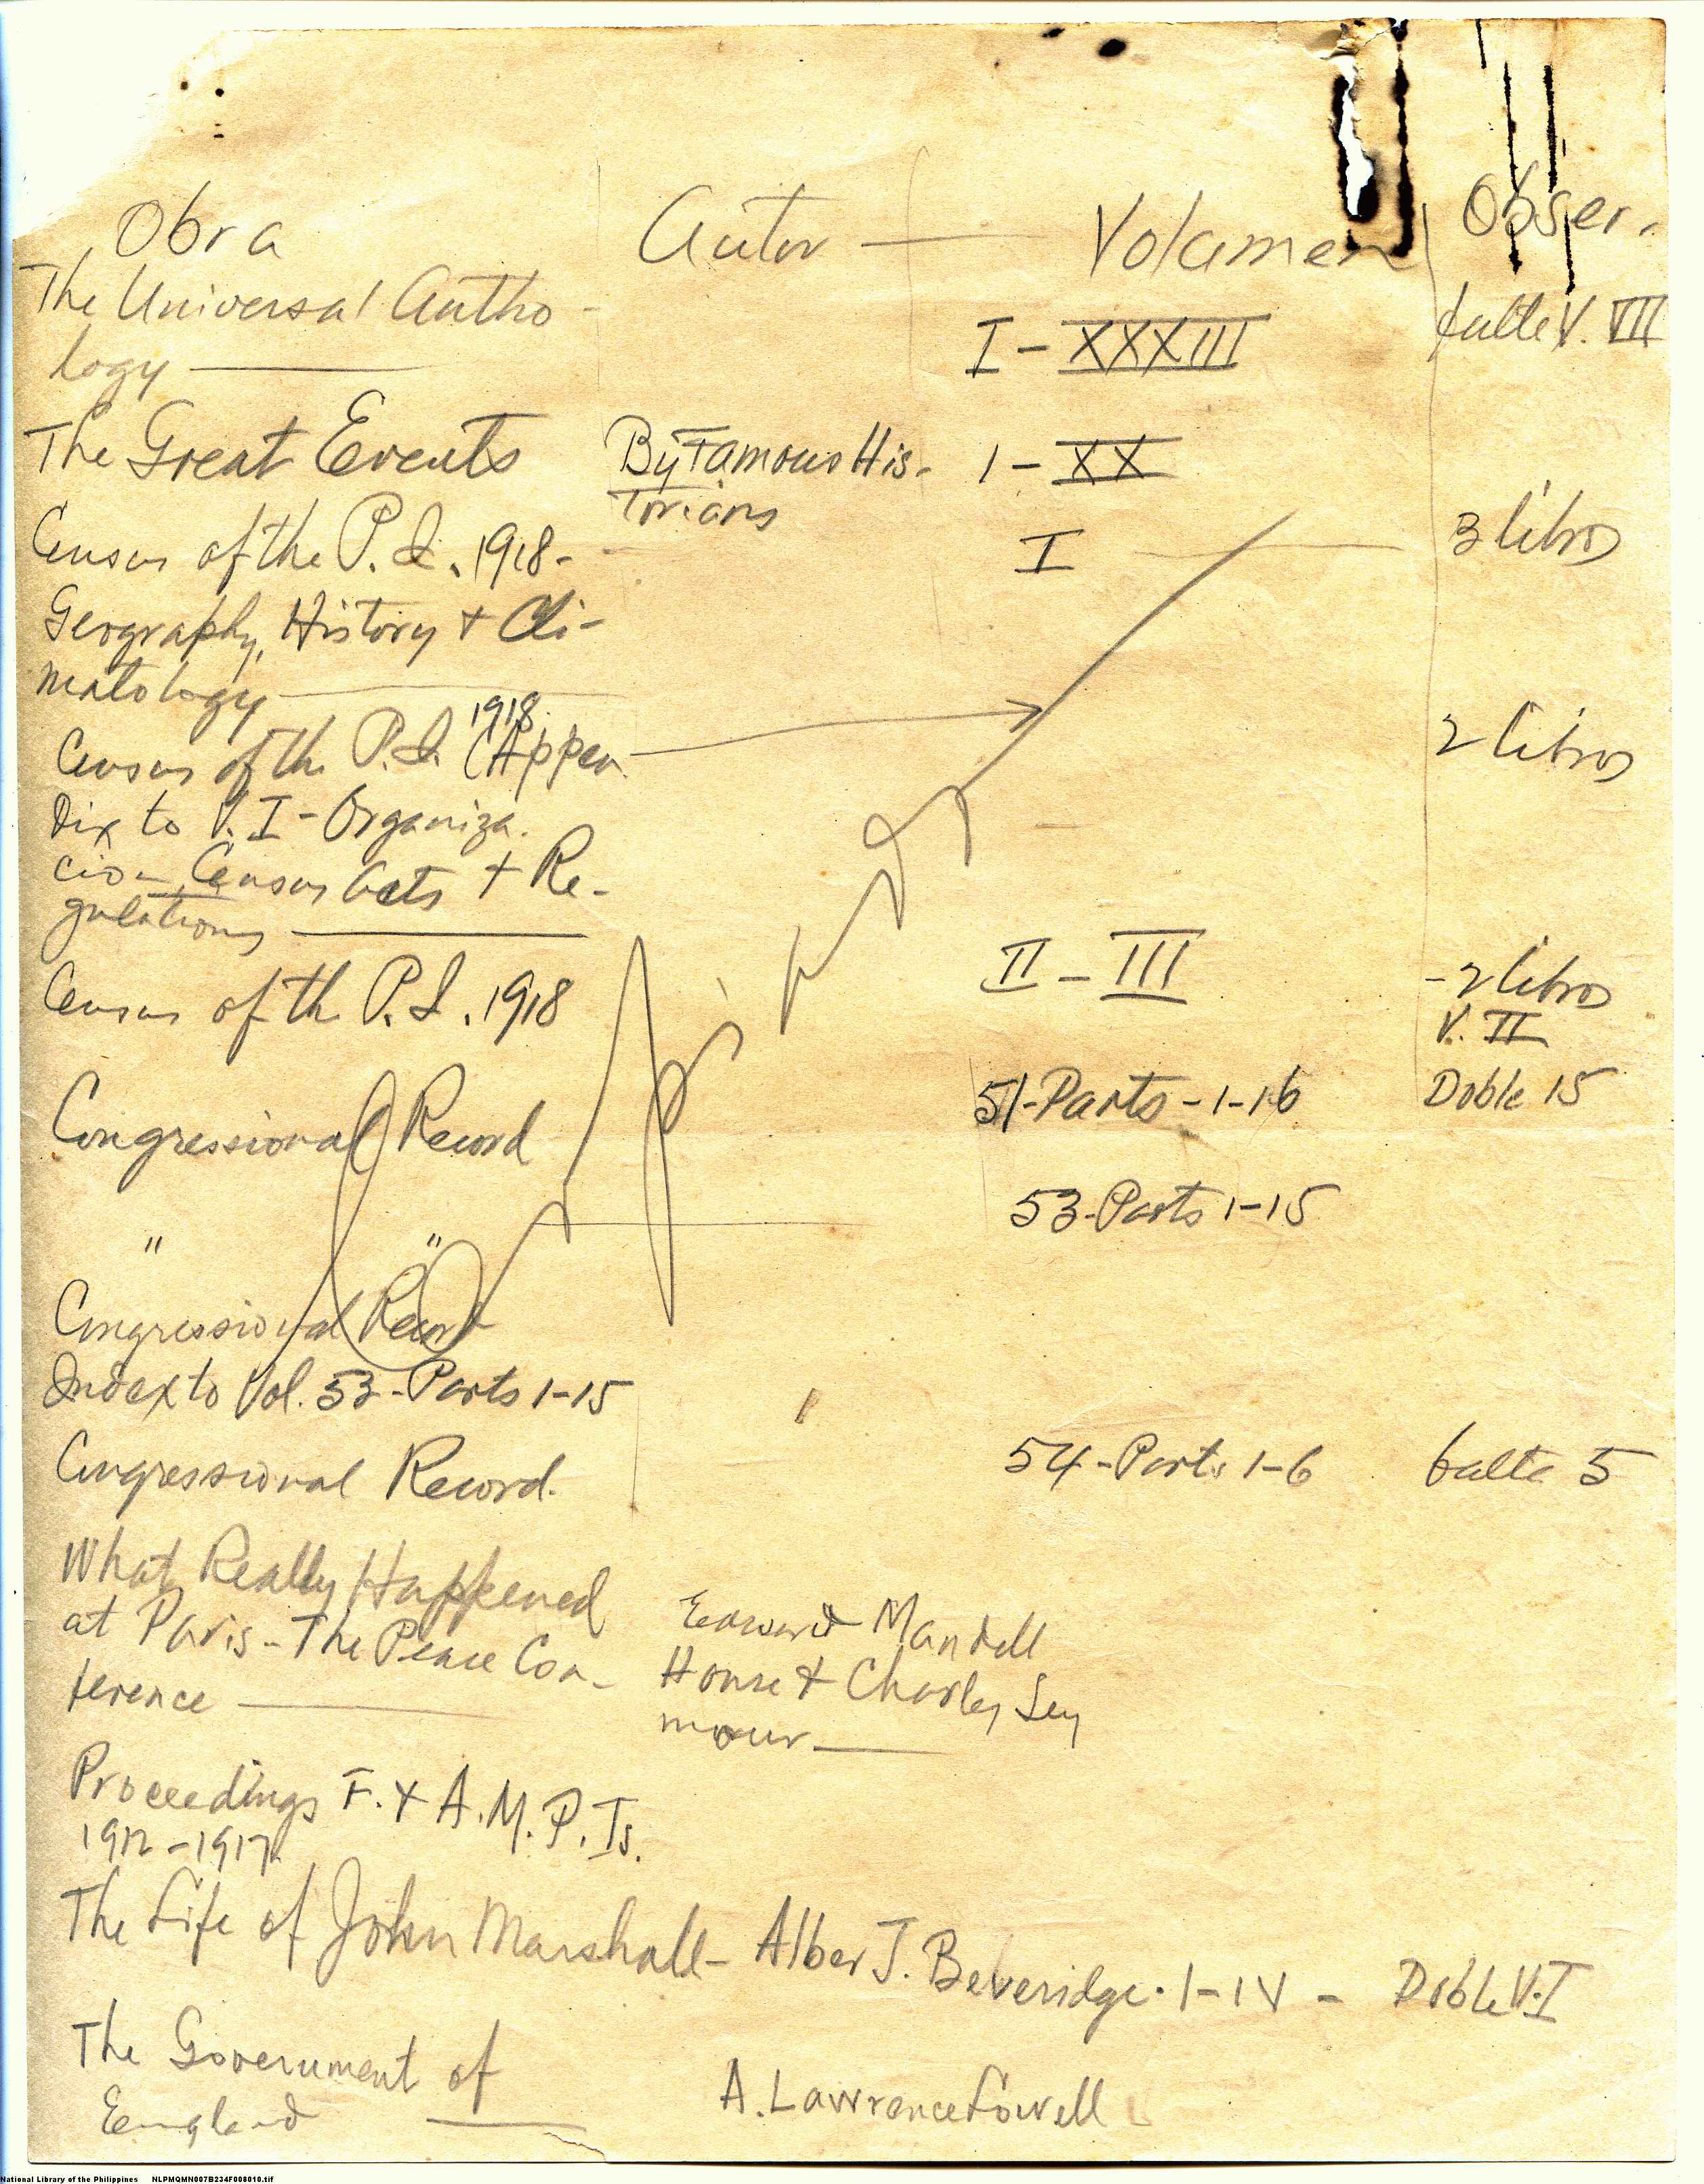 Obra Autor Volumen Obser.
The Universal Antho-
logy I - XXXIII falta V. VII
The Great Events By Famous His- I - XX
torians
Census of the P.I. 1918- I 3 libros
Geography, History + Cli-
matology
1918
Census of the P.I. (Appen 2 libros
dix to V. I - Organiza.
cion, Census Acts + Re-
gulations
Census of the P.I. 1918 II - III - 2 libros
V. II
Congressional Record 51-Parts - 1-16 Doble 15
" " 53-Parts 1-15
Congressional Record
Index to Vol. 53-Parts 1-15
Congressional Record. 54-Parts 1-6 falta 5
What Really Happened
at Paris - The Peace Con- Edward Mandell
ference House + Charles Sey
mour
Proceedings F. + A.M. P. Is.
1912-1917
The Life of John Marshall - Alber J. Beveridge. I-IV - Doble V.I
The Government of A. Lawrence Lowell
England
National Library of the Philippines NLPMQMN007B234F008010.tif